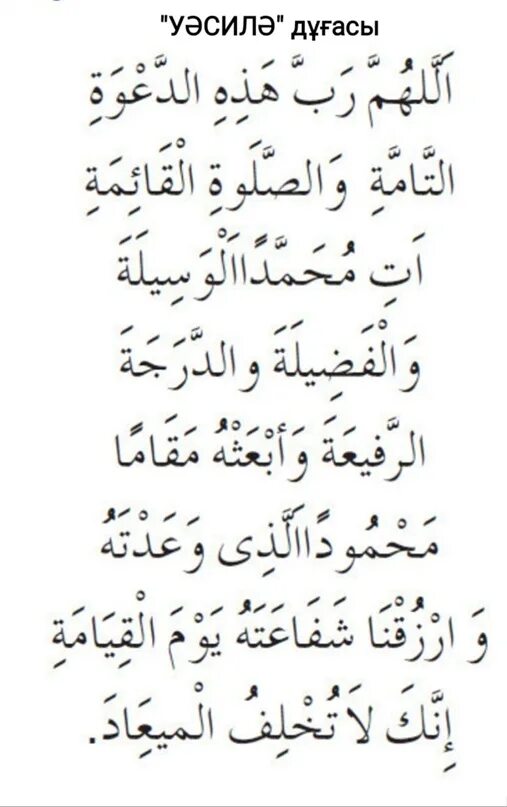 "УӘСИЛӘ" дұғасы
اَللَّهُمَّ رَبَّ هَذِهِ الدَّعْوَةِ
التَّامَّةِ وَالصَّلَوةِ الْقَائِمَةِ
اَتِ مُحَمَّدًااَلْوَسِيلَةَ
وَالْفَضِيلَةَ والدَّرَجَةَ
الرَّفِيعَةَ وَأبْعَثْهُ مَقَامًا
مَحْمُودًااَلَّذِى وَعَدْتَهُ
وَ ارْزُقْنَا شَفَاعَتَهُ يَوْمَ الْقِيَامَةِ
إِنَّكَ لاَ تُخْلِفُ الْميعِادَ.